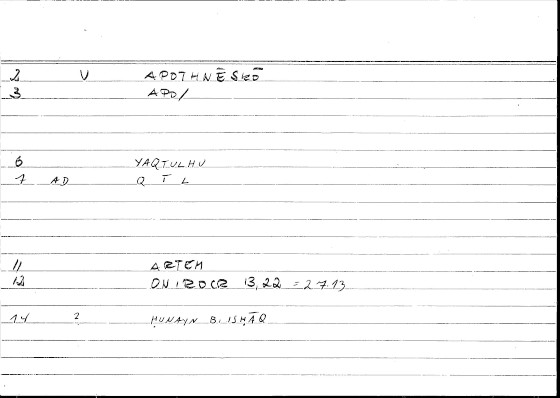 2 V APOTHNĒSKŌ
3 APO/
6 YAQTULHU
7 AD Q T L
11 ARTEM
12 ONIROCR 13,22 = 27 13
14 2 ḤUNAYN B. ISḤĀQ